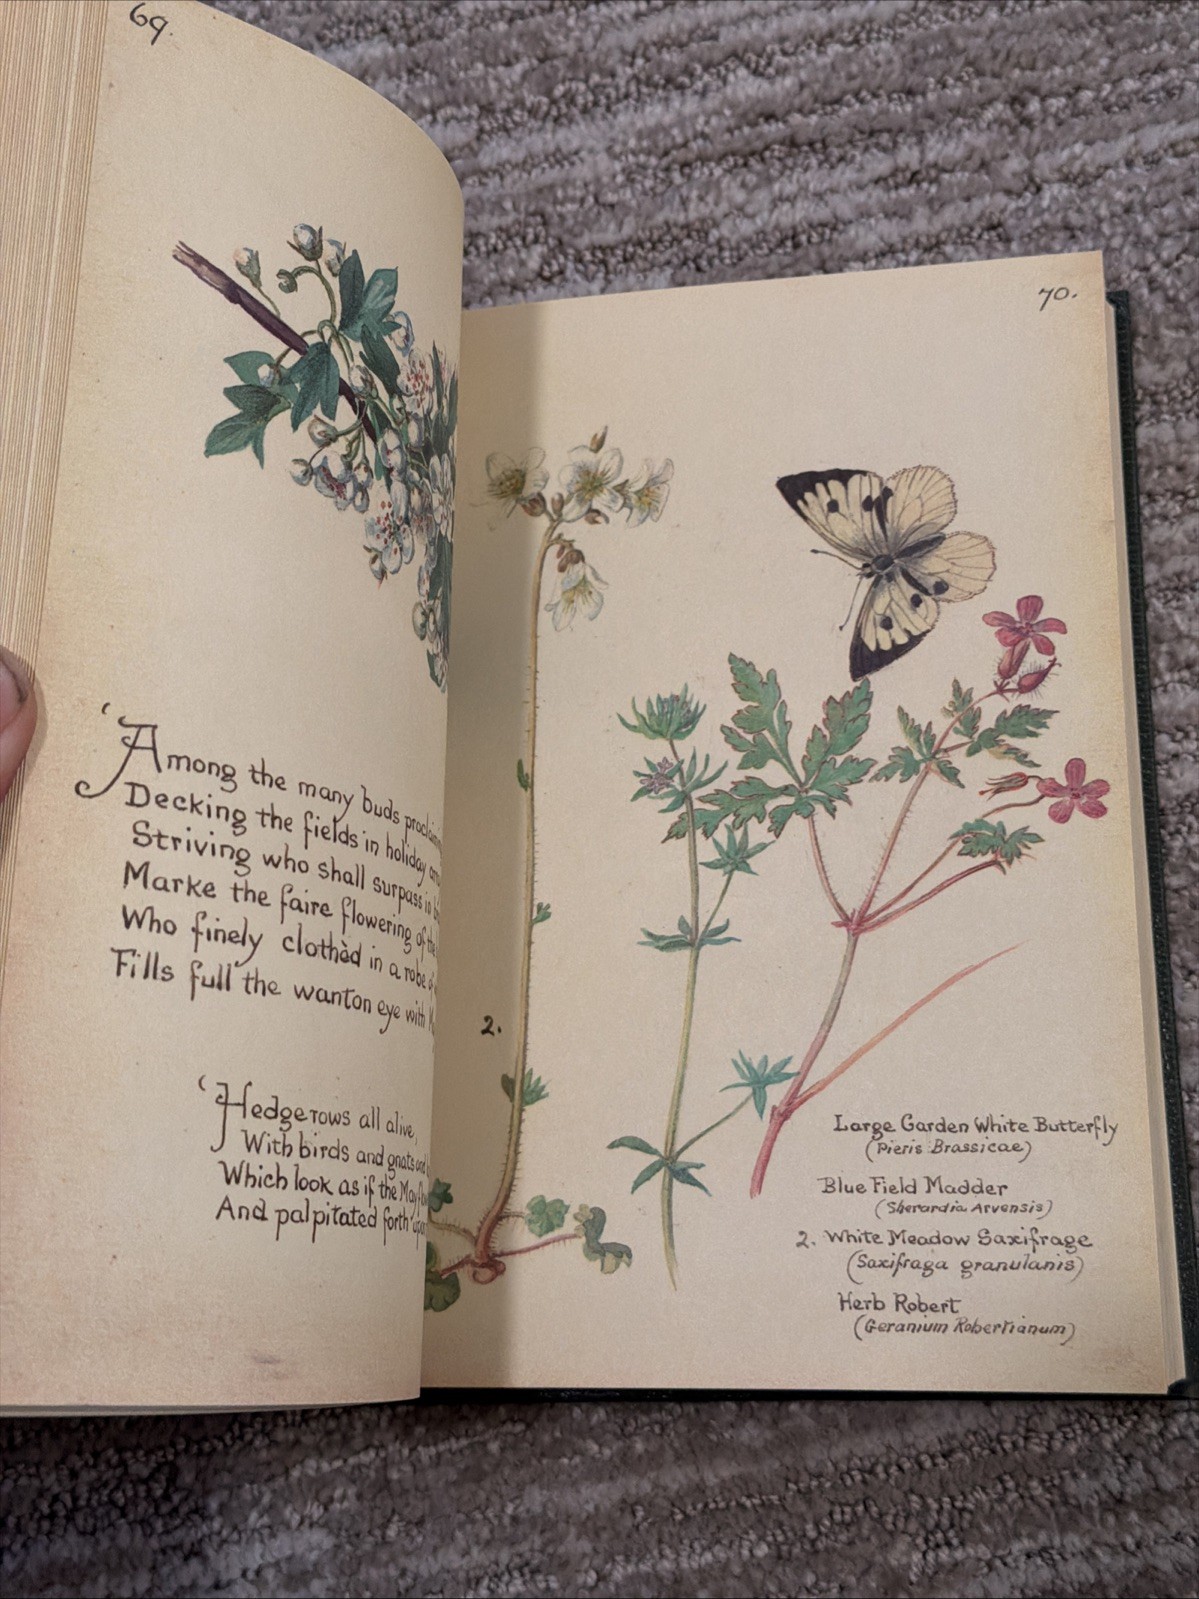 69.
'Among the many buds
Decking the fields in holiday
Striving who shall surpass in
Marke the faire flowering of the
Who finely clothèd in a robe
Fills full the wanton eye with
'Hedgerows all alive,
With birds and gnats
Which look as if the May
And palpitated forth
70.
2.
Large Garden White Butterfly
(Pieris Brassicae)
Blue Field Madder
(Sherardia Arvensis)
2. White Meadow Saxifrage
(Saxifraga granulanis)
Herb Robert
(Geranium Robertianum)